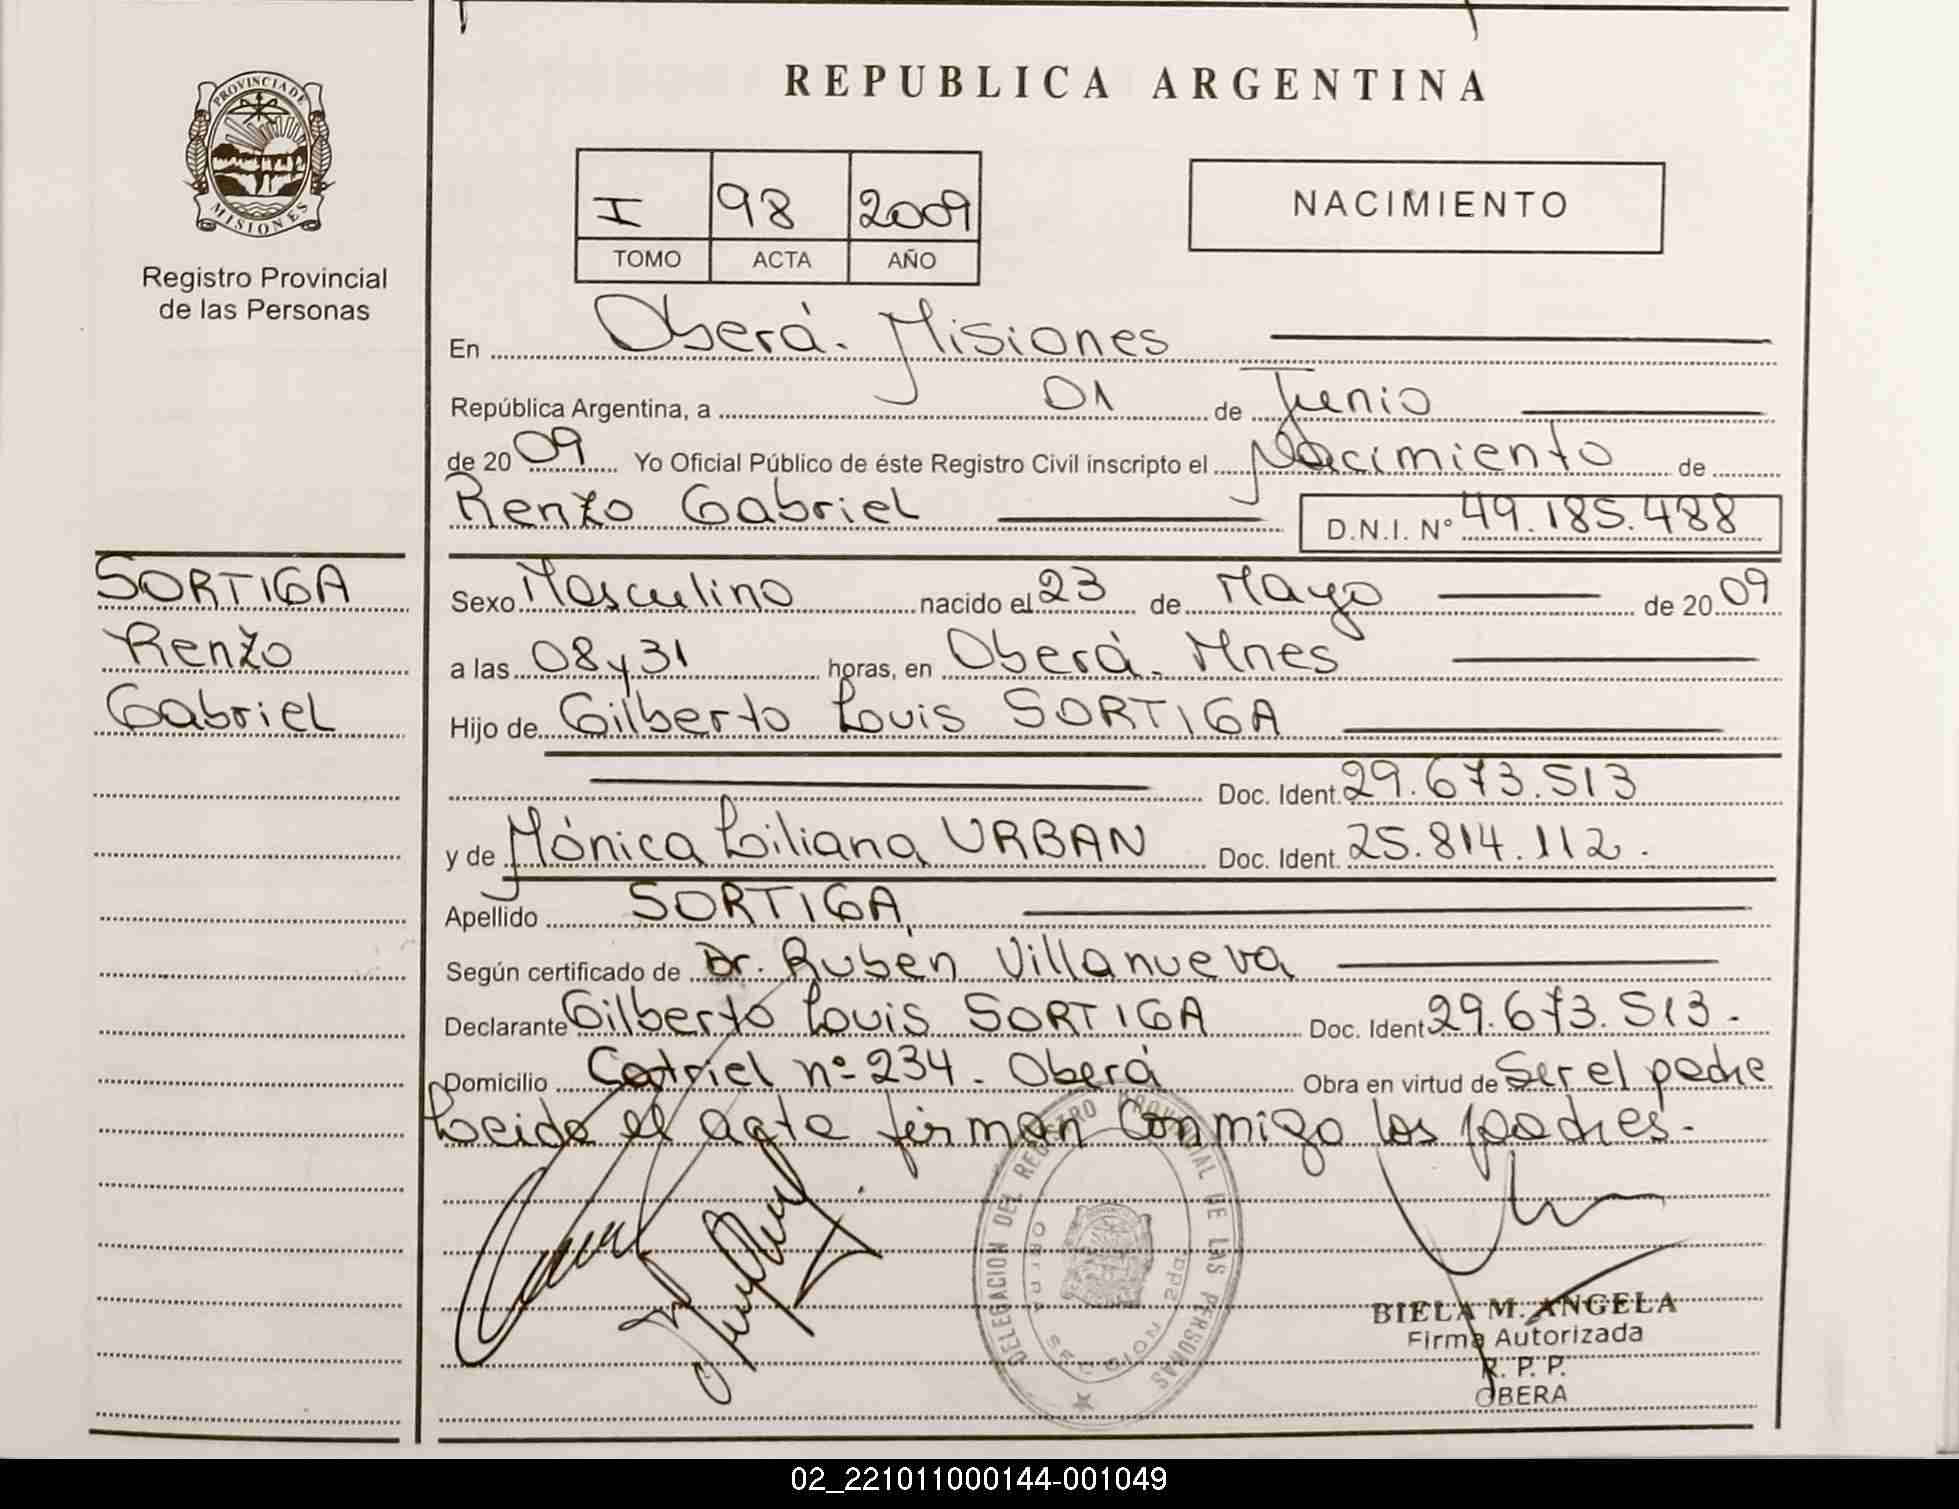 PROVINCIA DE
MISIONES
Registro Provincial
de las Personas
SORTIGA
Renzo
Gabriel
REPUBLICA ARGENTINA
I 98 2009
TOMO ACTA AÑO
NACIMIENTO
En Oberá. Misiones
República Argentina, a 01 de Junio
de 2009 Yo Oficial Público de éste Registro Civil inscripto el Nacimiento de
Renzo Gabriel D.N.I. Nº 49.185.488
Sexo Masculino nacido el 23 de Mayo de 2009
a las 08 y 31 horas, en Oberá. Mnes
Hijo de Gilberto Louis SORTIGA
Doc. Ident. 29.673.513
y de Mónica Liliana URBAN Doc. Ident. 25.814.112.
Apellido SORTIGA
Según certificado de Dr. Rubén Villanueva
Declarante Gilberto Louis SORTIGA Doc. Ident 29.673.513.
Domicilio Catriel nº 234. Oberá Obra en virtud de Ser el padre
Leida el acta firman conmigo los padres.
DELEGACION DEL REGISTRO PROVINCIAL DE LAS PERSONAS
BIELA M. ANGELA
Firma Autorizada
R. P. P.
OBERA
02_221011000144-001049